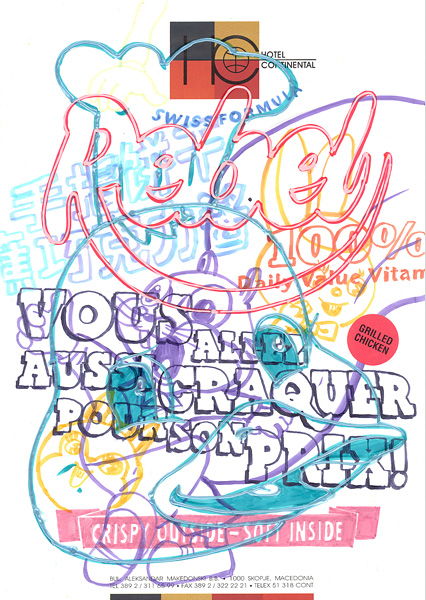 HC
HOTEL
CONTINENTAL
SWISS FORMULA
Rebel
手指饼干
巧克力
100%
Daily Value Vitam
VOUS
ALLEZ
AUSSI CRAQUER
POUR SON
PRIX!
GRILLED
CHICKEN
CRISPY OUTSIDE - SOFT INSIDE
BUL. ALEKSANDAR MAKEDONSKI B.B. • 1000 SKOPJE, MACEDONIA
TEL 389 2 / 311 66 99 • FAX 389 2 / 322 22 21 • TELEX 51 318 CONT